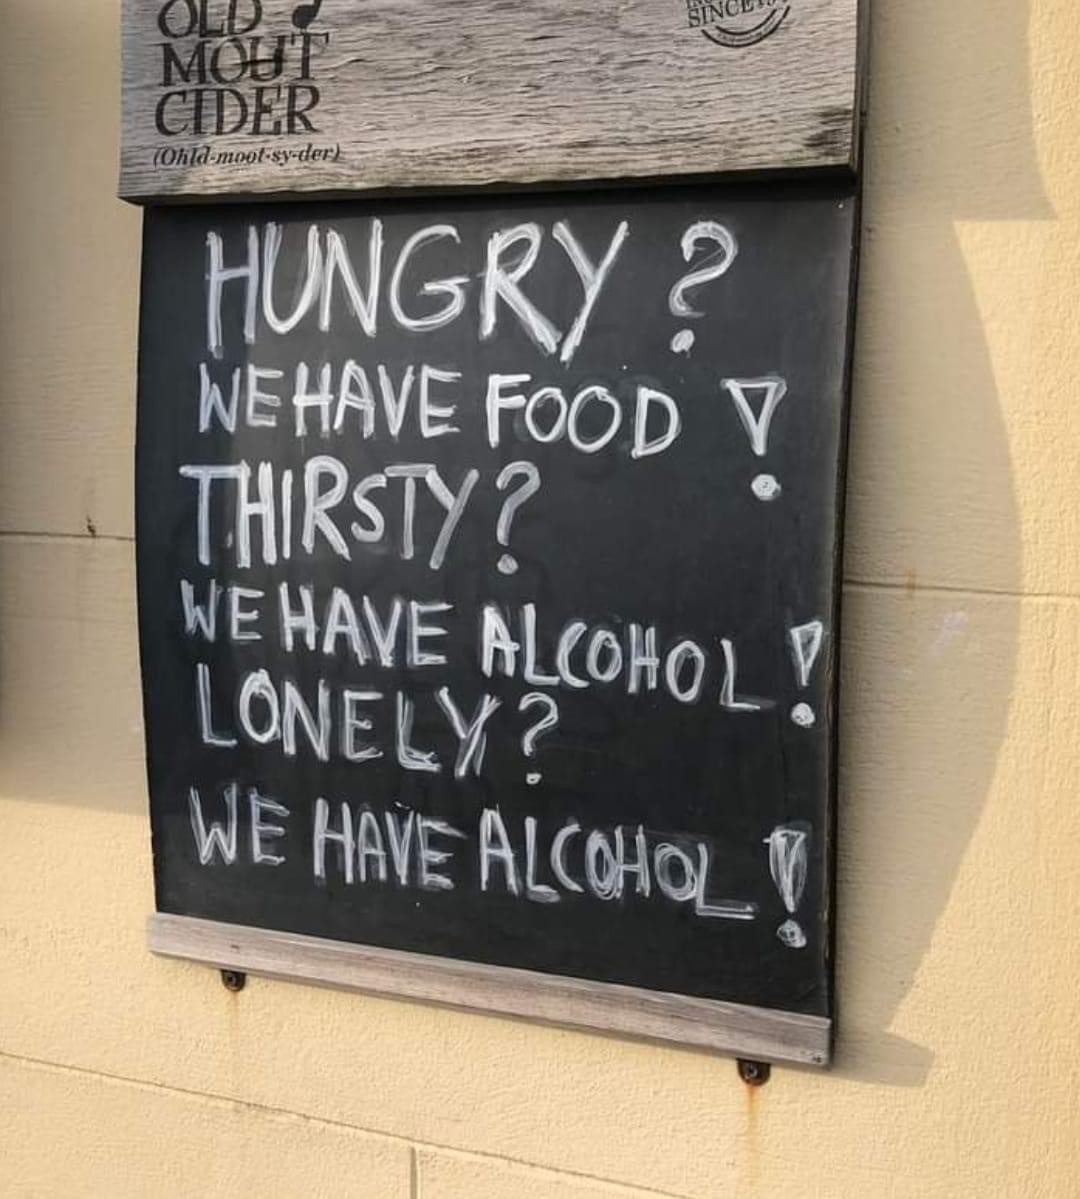 OLD
MOUT
CIDER
(Ohld-moot-sy-der)
SINCE
HUNGRY ?
WE HAVE FOOD !
THIRSTY?
WE HAVE ALCOHOL !
LONELY?
WE HAVE ALCOHOL !